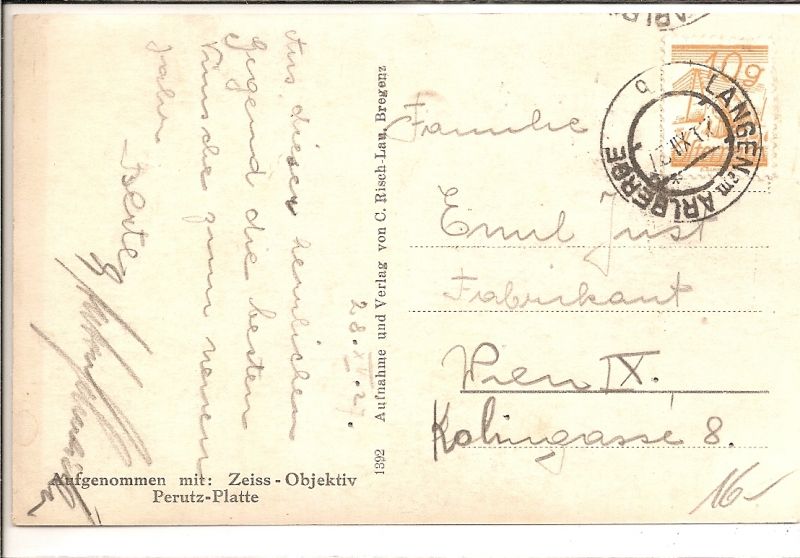 Aus dieser herrlichen
Gegend die besten
Wünsche zum neuen
Jahr
28.XII.27.
1392 Aufnahme und Verlag von C. Risch-Lau, Bregenz
Aufgenommen mit: Zeiss-Objektiv
Perutz-Platte
10g
LANGEN am ARLBERGE
Familie
Emil Just
Fabrikant
Wien IX.
Kolingasse 8.
16-